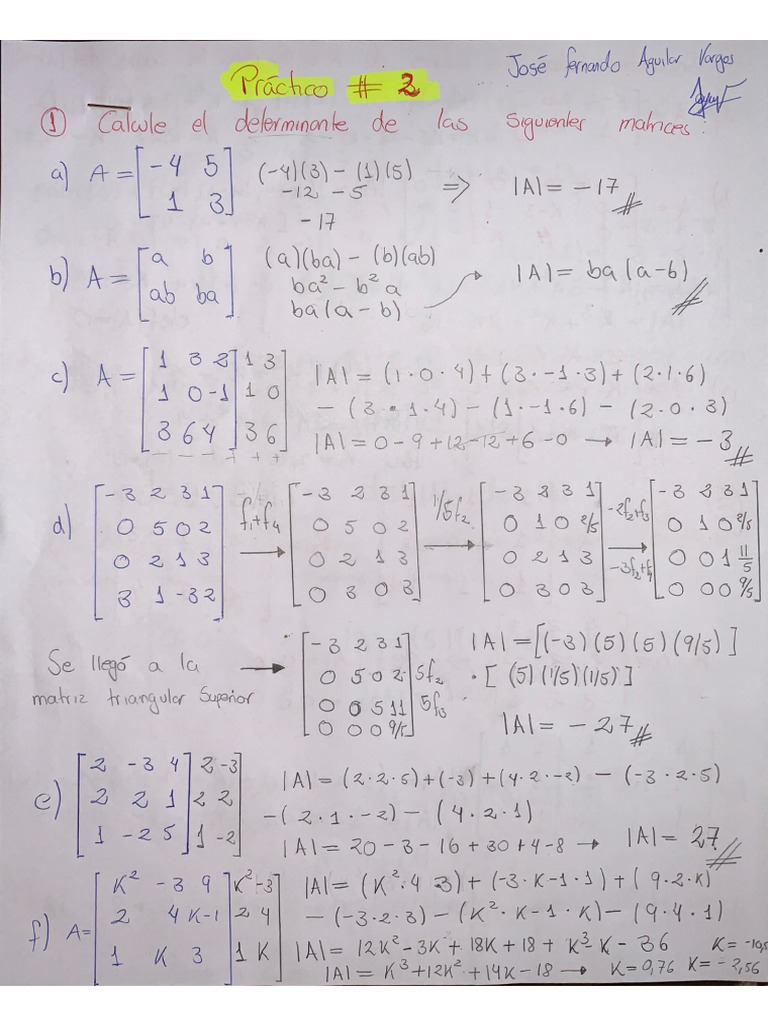 José Fernando Aguilar Vargas
Práctico # 2
① Calcule el determinante de las siguientes matrices:
a) A = [-4 5; 1 3] (-4)(3) - (1)(5)
-12 - 5 ⇒ |A| = -17
-17
b) A = [a b; ab ba] (a)(ba) - (b)(ab)
ba² - b²a |A| = ba(a-b)
ba(a - b)
c) A = [1 3 2; 1 0 -1; 3 6 4] 1 3; 1 0; 3 6 |A| = (1·0·4) + (3·-1·3) + (2·1·6)
- (3·1·4) - (1·-1·6) - (2·0·3)
|A| = 0 - 9 + 12 - 12 + 6 - 0 → |A| = -3
- - - + + +
d) [-3 2 3 1; 0 5 0 2; 0 2 1 3; 3 1 -3 2] f₁+f₄ → [-3 2 3 1; 0 5 0 2; 0 2 1 3; 0 3 0 3] 1/5f₂ → [-3 2 3 1; 0 1 0 2/5; 0 2 1 3; 0 3 0 3] -2f₂+f₃ -3f₂+f₄ → [-3 2 3 1; 0 1 0 2/5; 0 0 1 11/5; 0 0 0 9/5]
Se llegó a la matriz triangular Superior → [-3 2 3 1; 0 5 0 2; 0 0 5 11; 0 0 0 9/5] 5f₂ 5f₃
|A| = [(-3)(5)(5)(9/5)]
· [(5)(1/5)(1/5)]
|A| = -27
e) [2 -3 4; 2 2 1; 1 -2 5] 2 -3; 2 2; 1 -2 |A| = (2·2·5) + (-3) + (4·2·-2) - (-3·2·5)
- (2·1·-2) - (4·2·1)
|A| = 20 - 3 - 16 + 30 + 4 - 8 → |A| = 27
f) A = [K² -3 9; 2 4 K-1; 1 K 3] K² -3; 2 4; 1 K |A| = (K²·4 3) + (-3·K-1·1) + (9·2·K)
- (-3·2·3) - (K²·K-1·K) - (9·4·1)
|A| = 12K² - 3K + 18K + 18 + K³ K - 36 K = -10,5
|A| = K³ + 12K² + 14K - 18 → K = 0,76 K = -2,56